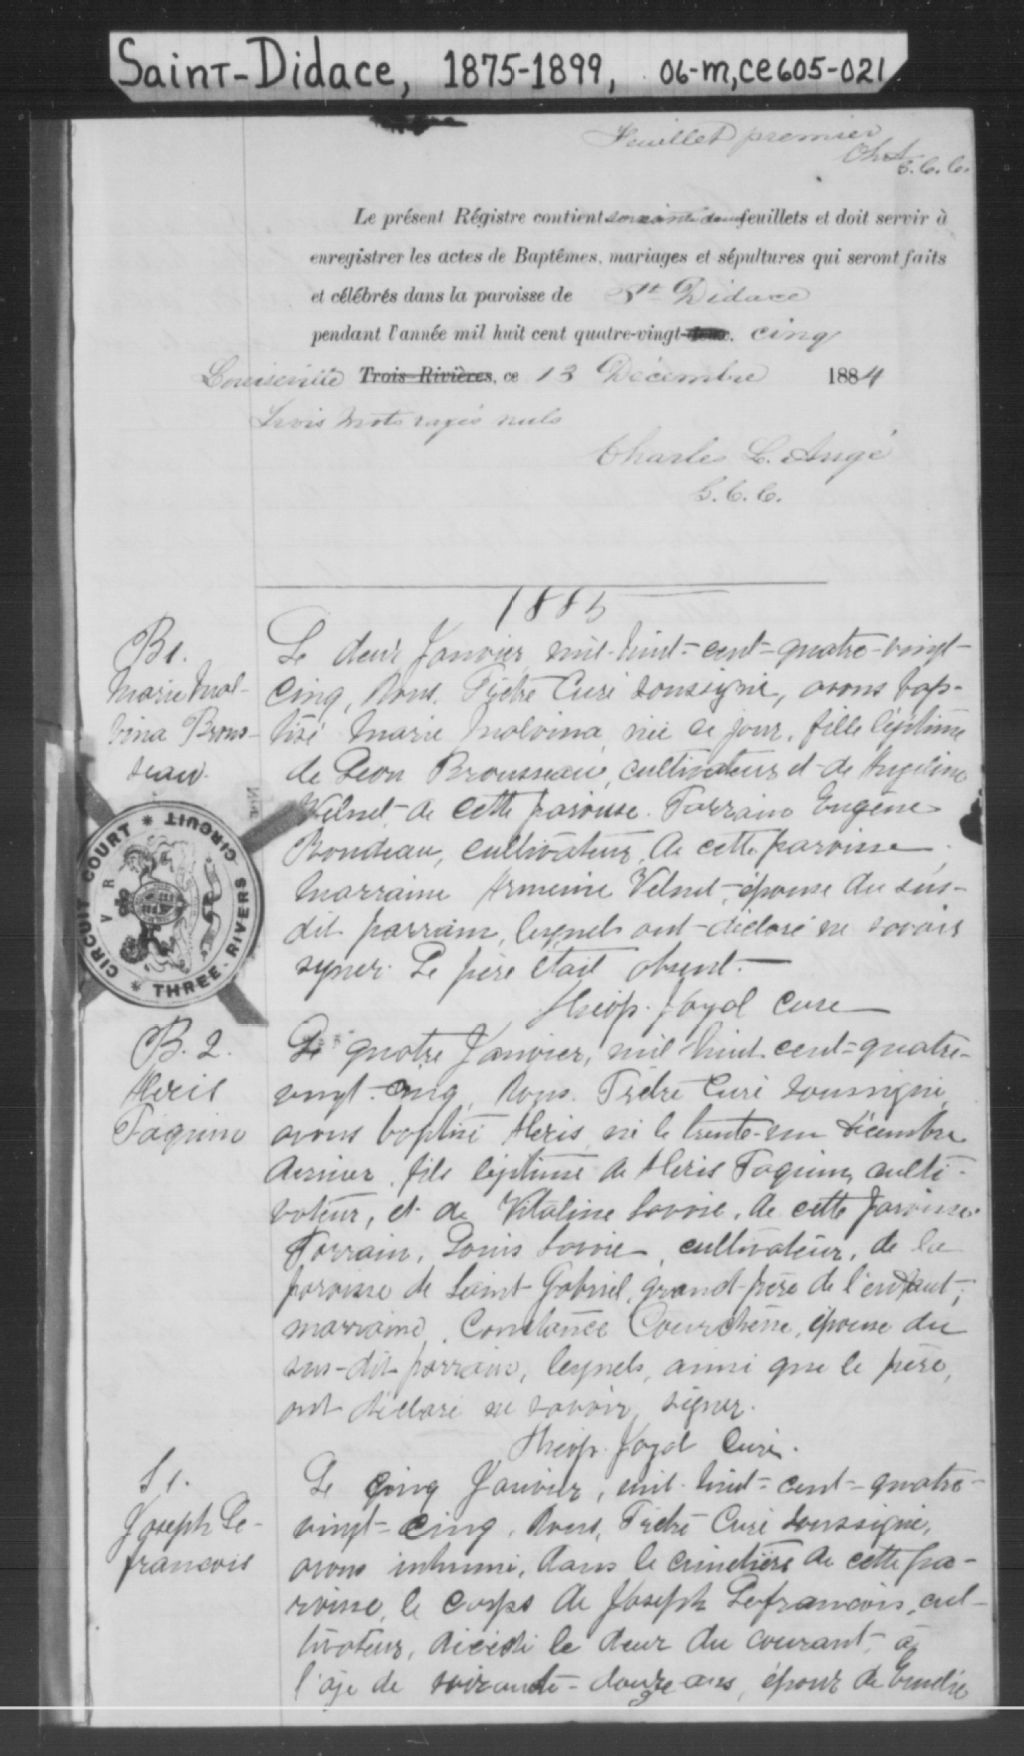 Saint-Didace, 1875-1899, 06-M,CE605-021
Feuillet premier
Chs A
G.C.C.
Le présent Régistre contient soixante deux feuillets et doit servir à
enregistrer les actes de Baptêmes, mariages et sépultures qui seront faits
et célébrés dans la paroisse de St Didace
pendant l'année mil huit cent quatre-vingt-deux, cinq
Louiseville Trois-Rivières, ce 13 Décembre 1884
Trois mots rayés nuls
Charles L. Augé
G.C.C.
1885
B1.
Marie Mal-
vina Brous-
seau.
Le deux Janvier mil-huit-cent-quatre-vingt-
cinq, Nous, Prêtre Curé soussigné, avons bap-
tisé Marie Malvina née ce jour, fille légitime
de Léon Brousseau, cultivateur et de Angéline
de cette paroisse. Parrain Eugène
Rondeau, cultivateur, de cette paroisse,
marraine épouse du sus-
dit parrain, lesquels ont déclaré ne savoir
signer. Le père était absent.
Théop. Joyal Curé
CIRCUIT COURT * CIRCUIT * THREE-RIVERS *
V R
B. 2.
Alexis
Paquin
Le quatre Janvier, mil huit cent-quatre-
vingt-cinq, Nous, Prêtre Curé soussigné,
avons baptisé Alexis né le trente-un décembre
dernier, fils légitime de Alexis Paquin, culti-
vateur, et de Vitaline Savoie, de cette paroisse.
Parrain, Louis Savoie, cultivateur, de la
paroisse de Saint Gabriel, grand-père de l'enfant;
marraine, Constance Courchêne, épouse du
sus-dit parrain, lesquels, ainsi que le père,
ont déclaré ne savoir signer.
Théop. Joyal Curé.
S1.
Joseph Le-
francois
Le cinq Janvier, mil-huit-cent-quatre-
vingt-cinq, Nous, Prêtre Curé soussigné,
avons inhumé, dans le cimetière de cette pa-
roisse, le corps de Joseph Lefrancois, cul-
tivateur, décédé le deux du courant, à
l'âge de soixante-douze ans, époux de